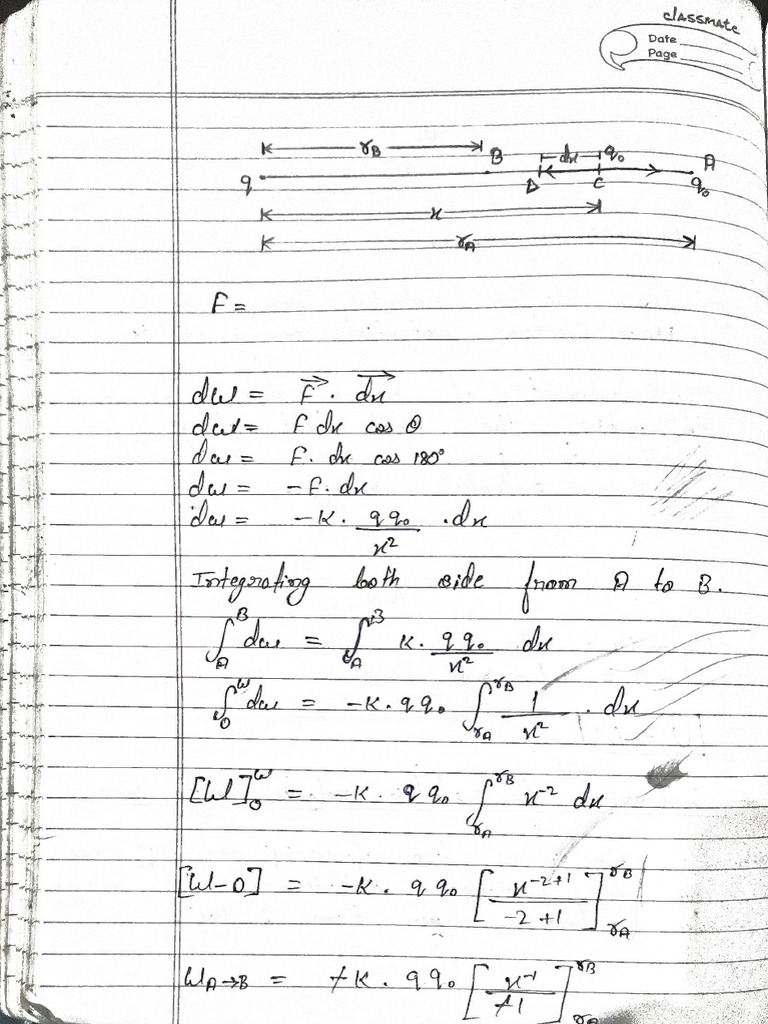 classmate
Date
Page
r_B
q B dx q₀ A
D C q₀
x
r_A
F =
dw = F⃗ . dx⃗
dw = F dx cos θ
dw = F. dx cos 180°
dw = -F. dx
dw = -K. qq₀/x² .dx
Integrating both side from A to B.
∫_A^B dw = ∫_{r_A}^{r_B} K. qq₀/x² dx
∫_0^w dw = -K. qq₀ ∫_{r_A}^{r_B} 1/x² . dx
[W]_0^w = -K. qq₀ ∫_{r_A}^{r_B} x⁻² dx
[W-0] = -K. qq₀ [x^{-2+1}/-2+1]_{r_A}^{r_B}
W_{A→B} = +K. qq₀ [x⁻¹/+1]_{r_A}^{r_B}